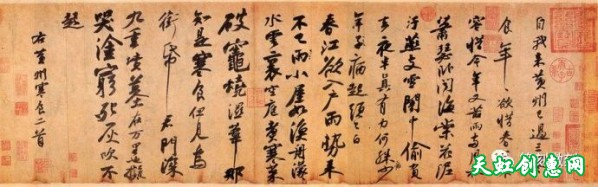 自我来黄州已過三寒
食年〃欲惜春春去不
容惜今年又苦雨两月秋
蕭瑟卧聞海棠花泥
汙燕支雪闇中偷負
去夜半真有力何殊少
年子病起頭已白
春江欲入户雨勢来
不已雨小屋如漁舟濛〃
水雲裏空庖煮寒菜
破竈燒濕葦那
知是寒食但見烏
銜帋君門深
九重墳墓在万里也擬
哭塗窮死灰吹不
起
右黄州寒食二首
天虹创意网